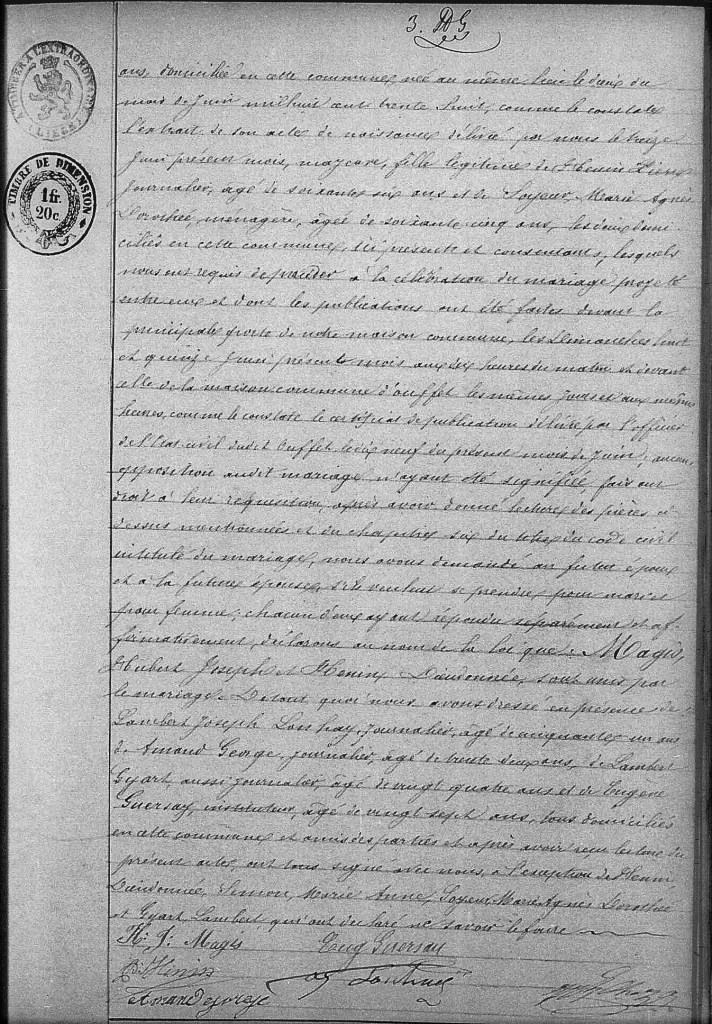 3. DG
TIMBRE A L'EXTRAORDINAIRE
LIEGE
TIMBRE DE DIMENSION
1 fr.
20c.
ans, domiciliée en cette commune, née au même lieu le deux du
mois de Juin mil huit cent trente huit, comme le constate
l'extrait de son acte de naissance délivré par nous le treize
Juin présent mois, majeure, fille légitime de Henin Pierre
Journalier, âgé de soixante six ans et de Soyeur, Marie Agnès
Dorothée, ménagère, âgée de soixante cinq ans, les deux domi
ciliés en cette commune ici présents et consentants, lesquels
nous ont requis de procéder à la célébration du mariage projeté
entre eux et dont les publications ont été faites devant la
principale porte de notre maison commune, les dimanches huit
et quinze Juin présent mois aux dix heures du matin et devant
celle de la maison commune d'ouffet les mêmes jours et aux mêmes
heures, comme le constate le certificat de publication délivré par l'officier
de l'état civil dudit Ouffet le dix neuf du présent mois de Juin; aucune
opposition audit mariage n'ayant été signifiée, faisant
droit à leur réquisition, après avoir donné lecture des pièces ci
dessus mentionnées et du chapitre six du titre du code civil
intitulé du mariage, nous avons demandé au futur époux
et à la future épouse, s'ils veulent se prendre pour mari et
pour femme; chacun d'eux ayant répondu séparément et af
firmativement, déclarons au nom de la loi que: Magis,
Hubert Joseph et Henin Dieudonnée, sont unis par
le mariage. De tout quoi nous avons dressé en présence de
Lambert Joseph Lonhay, journalier, âgé de cinquante un ans
de Amand George, journalier, âgé de trente deux ans, de Lambert
Gyart, aussi journalier, âgé de vingt quatre ans et de Eugène
Guersay, instituteur, âgé de vingt sept ans, tous domiciliés
en cette commune et amis des parties et après avoir reçu lecture du
présent acte, ont tous signé avec nous, à l'exception de Henin
Dieudonnée, Simon, Marie Anne, Soyeur, Marie Agnès Dorothée
et Gyart, Lambert, qui ont déclaré ne savoir le faire
H. J. Magis Eug Guersay
P. Henin
Amand george